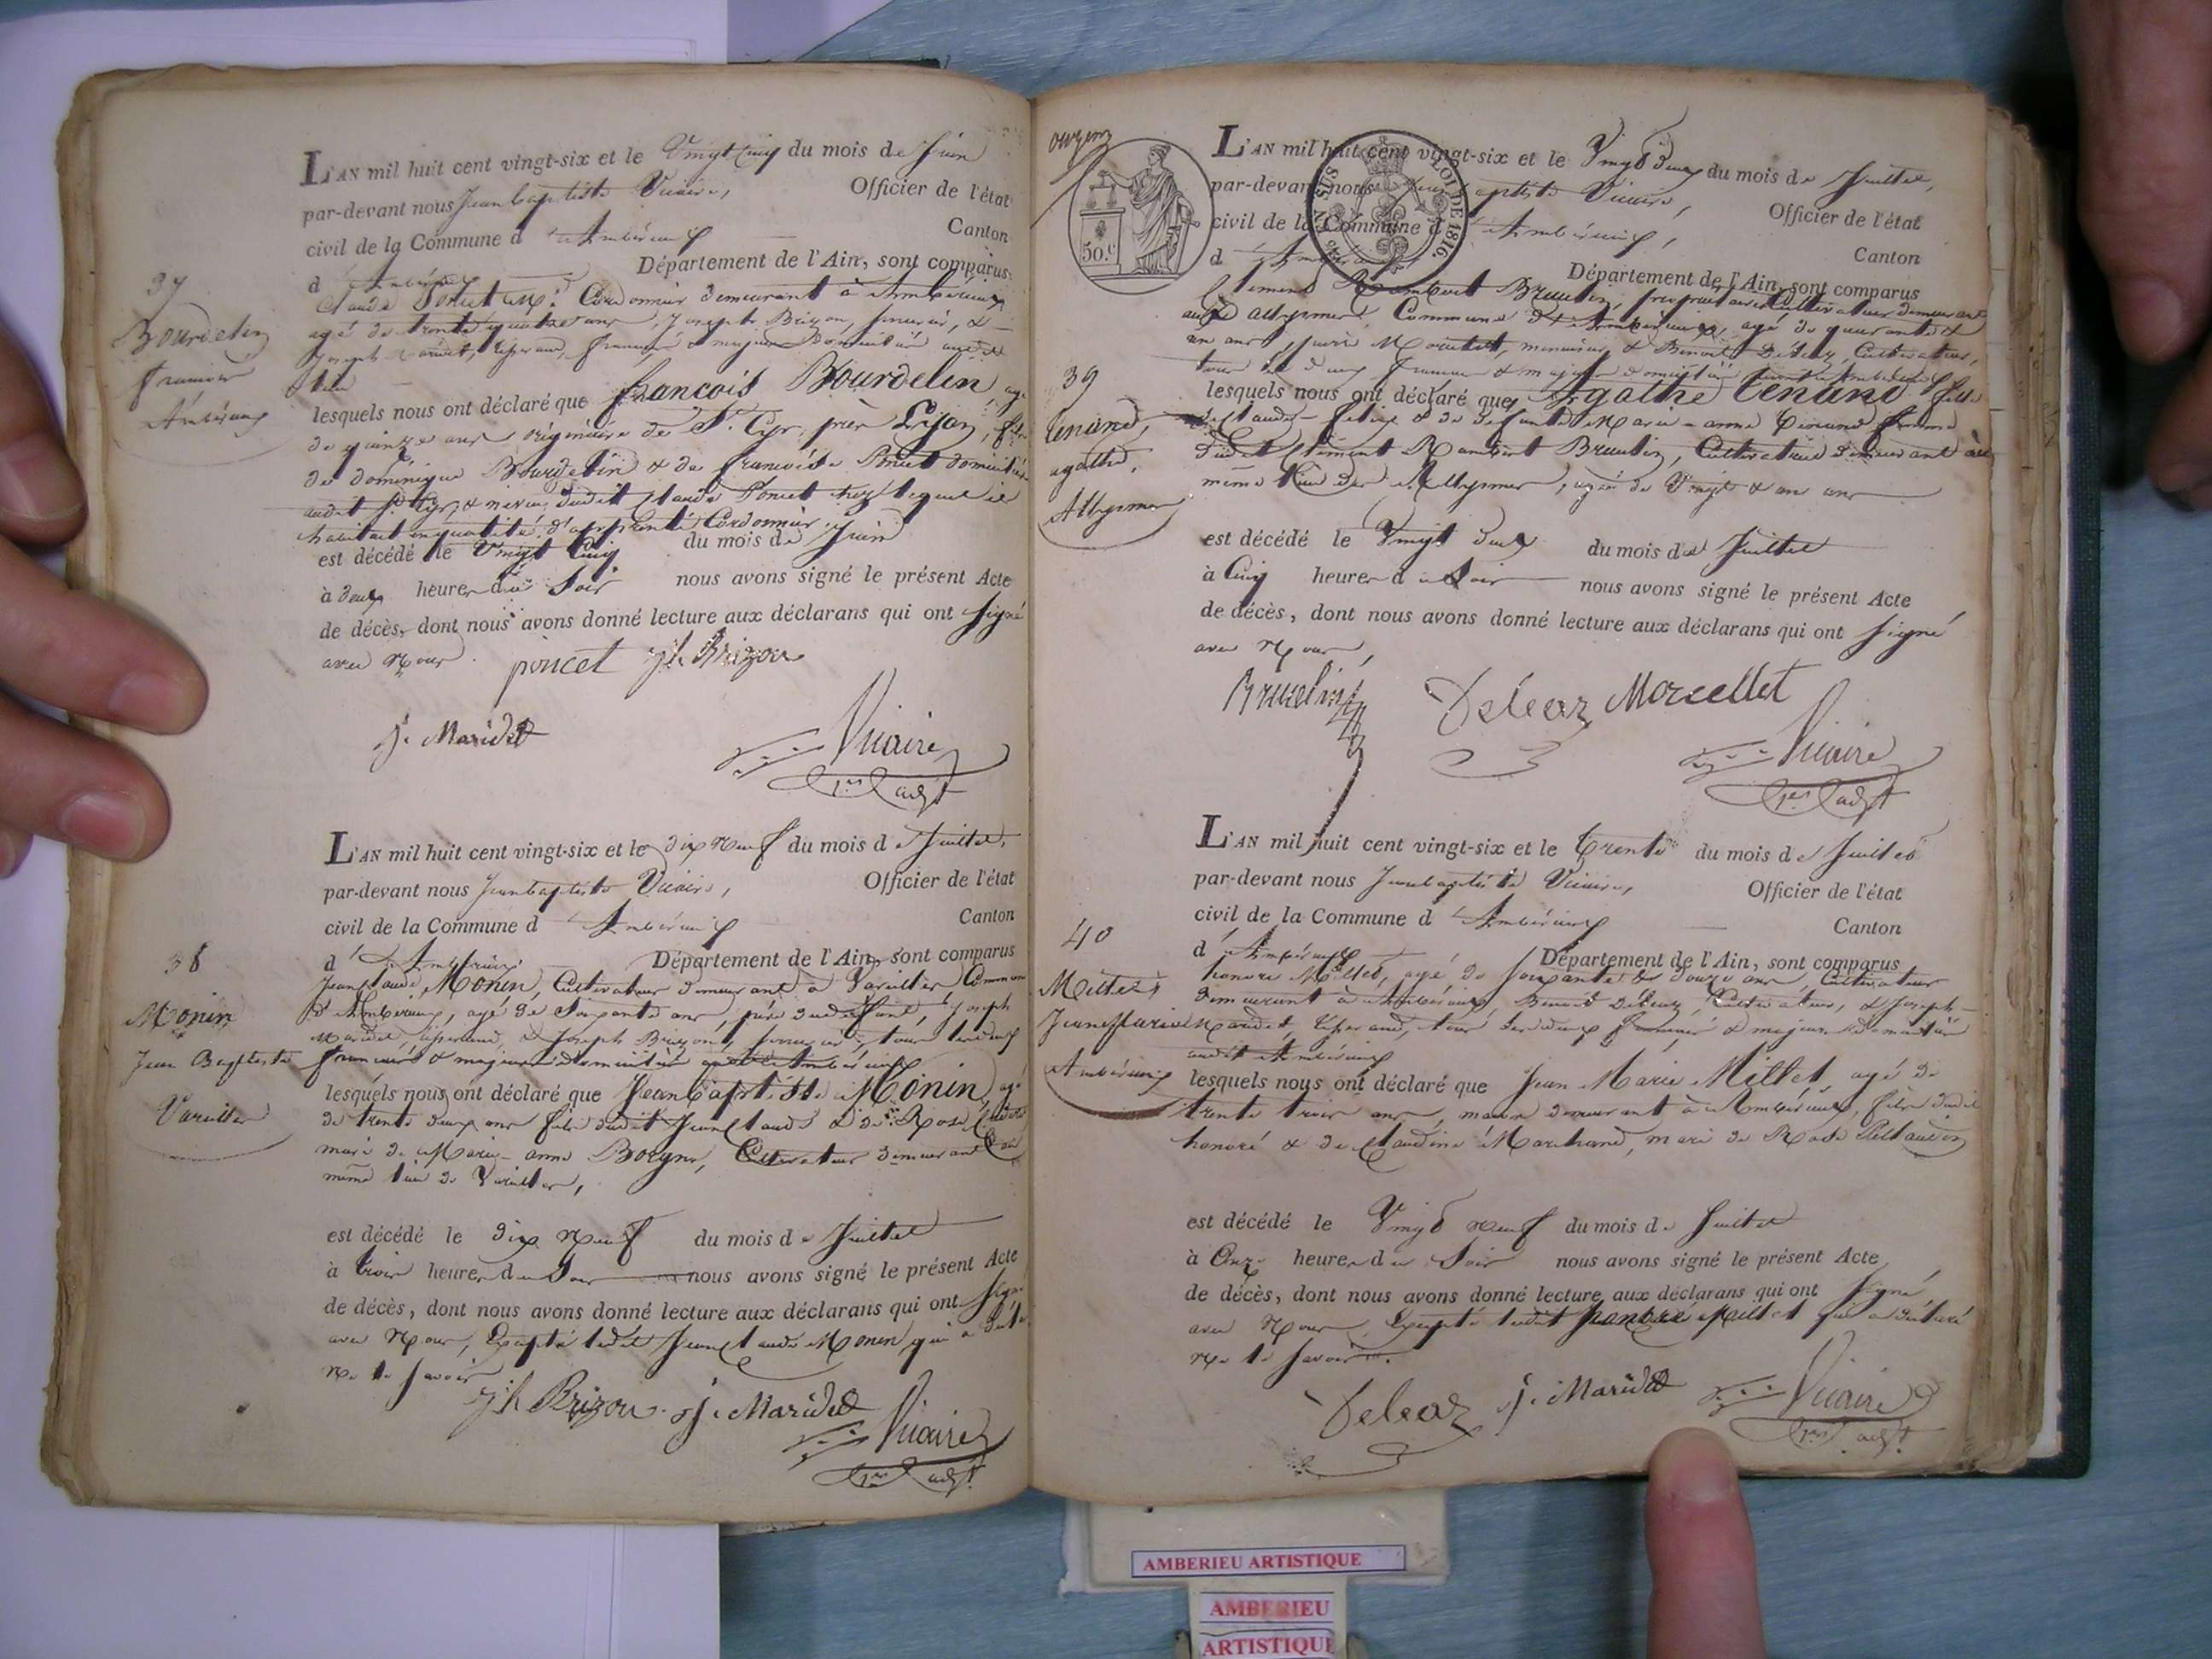 L'AN mil huit cent vingt-six et le Vingt Cinq du mois de Juin
par-devant nous Jean baptiste Vicaire, Officier de l'état
civil de la Commune d'Ambérieux Canton
d'Ambérieux Département de l'Ain, sont comparus
Claude Poncet Cordonnier demeurant à Ambérieux
agé de trente quatre ans, Joseph Brizon, &
Joseph Maridet, français & majeurs domiciliés audit
37
Bourdelin
françois
Ambérieux
lesquels nous ont déclaré que françois Bourdelin agé
de quinze ans originaire de St. Cyr près Lyon, fils
de dominique Bourdelin & de françoise Poncet domiciliés
audit St Cyr, & neveu dudit Claude Poncet chez lequel il
habitait en qualité d'apprenti Cordonnier
est décédé le Vingt Cinq du mois de Juin
à deux heures du Soir nous avons signé le présent Acte
de décès, dont nous avons donné lecture aux déclarans qui ont signé
avec Nous.
poncet jh Brizon
j. Maridet
Vicaire
1er adjt
L'AN mil huit cent vingt-six et le dix Neuf du mois de Juillet,
par-devant nous Jean baptiste Vicaire, Officier de l'état
civil de la Commune d'Ambérieux Canton
d'Ambérieux Département de l'Ain, sont comparus
Jean Claude Monin, Cultivateur demeurant à Vareilles Commune
d'Ambérieux, agé de Soixante ans, père dudit défunt, Joseph
Maridet, & Joseph Brizon, tous les deux
français & majeurs domiciliés audit Ambérieux
38
Monin
Jean Baptiste
Vareilles
lesquels nous ont déclaré que Jean baptiste Monin, agé
de trente deux ans fils dudit Jean Claude & de Rose
mari de Marie-anne Borgne, Cultivateur demeurant au
même lieu de Vareilles,
est décédé le dix Neuf du mois de Juillet
à trois heures du Soir nous avons signé le présent Acte
de décès, dont nous avons donné lecture aux déclarans qui ont signé
avec Nous, Excepté ledit Jean Claude Monin qui a déclaré
Ne le Savoir
jh Brizon. j. Maridet
Vicaire
1er adjt
onzen
50.c
TIMB. SUS LOI DE 1816.
L'AN mil huit cent vingt-six et le Vingt deux du mois de Juillet,
par-devant nous Jean baptiste Vicaire, Officier de l'état
civil de la Commune d'Ambérieux, Canton
d'Ambérieux Département de l'Ain, sont comparus
Clément Rambert Bruelin, propriétaire Cultivateur demeurant
au Allymes, Commune d'Ambérieux, agé de quarante
un ans, Morcellet, menuisier & Benoit Déléaz, Cultivateur,
tous les deux français & majeurs domiciliés Ambérieux
39
tenand,
agathe,
Allymes
lesquels nous ont déclaré que Agathe tenand fille
de Claude-felix & de défunte Marie-anne tenand femme
dudit Clément Rambert Bruelin, Cultivatrice demeurant au
même lieu des Allymes, agée de Vingt & un ans
est décédé le Vingt deux du mois de Juillet
à Cinq heures du Soir nous avons signé le présent Acte
de décès, dont nous avons donné lecture aux déclarans qui ont signé
avec Nous,
Bruelin Deleaz Morcellet
Vicaire
1er adjt
L'AN mil huit cent vingt-six et le trente du mois de Juillet
par-devant nous Jean baptiste Vicaire, Officier de l'état
civil de la Commune d'Ambérieux Canton
d'Ambérieux Département de l'Ain, sont comparus
honoré Millet, agé de Soixante & douze ans, Cultivateur
demeurant à Ambérieux, Benoit Déléaz, Cultivateur, & Joseph
Maridet, tous les deux français & majeurs domiciliés
audit Ambérieux
40
Millet,
Jean Marie
Ambérieux
lesquels nous ont déclaré que Jean Marie Millet, agé de
trente trois ans, maçon demeurant à Ambérieux, fils dudit
honoré & de Claudine Marchand, mari de Rose
est décédé le Vingt Neuf du mois de Juillet
à Onze heures du Soir nous avons signé le présent Acte
de décès, dont nous avons donné lecture aux déclarans qui ont signé
avec Nous, Excepté ledit honoré Millet qui a déclaré
Ne le Savoir.
Deleaz j. Maridet
Vicaire
1er adjt.
AMBERIEU ARTISTIQUE
AMBERIEU
ARTISTIQUE